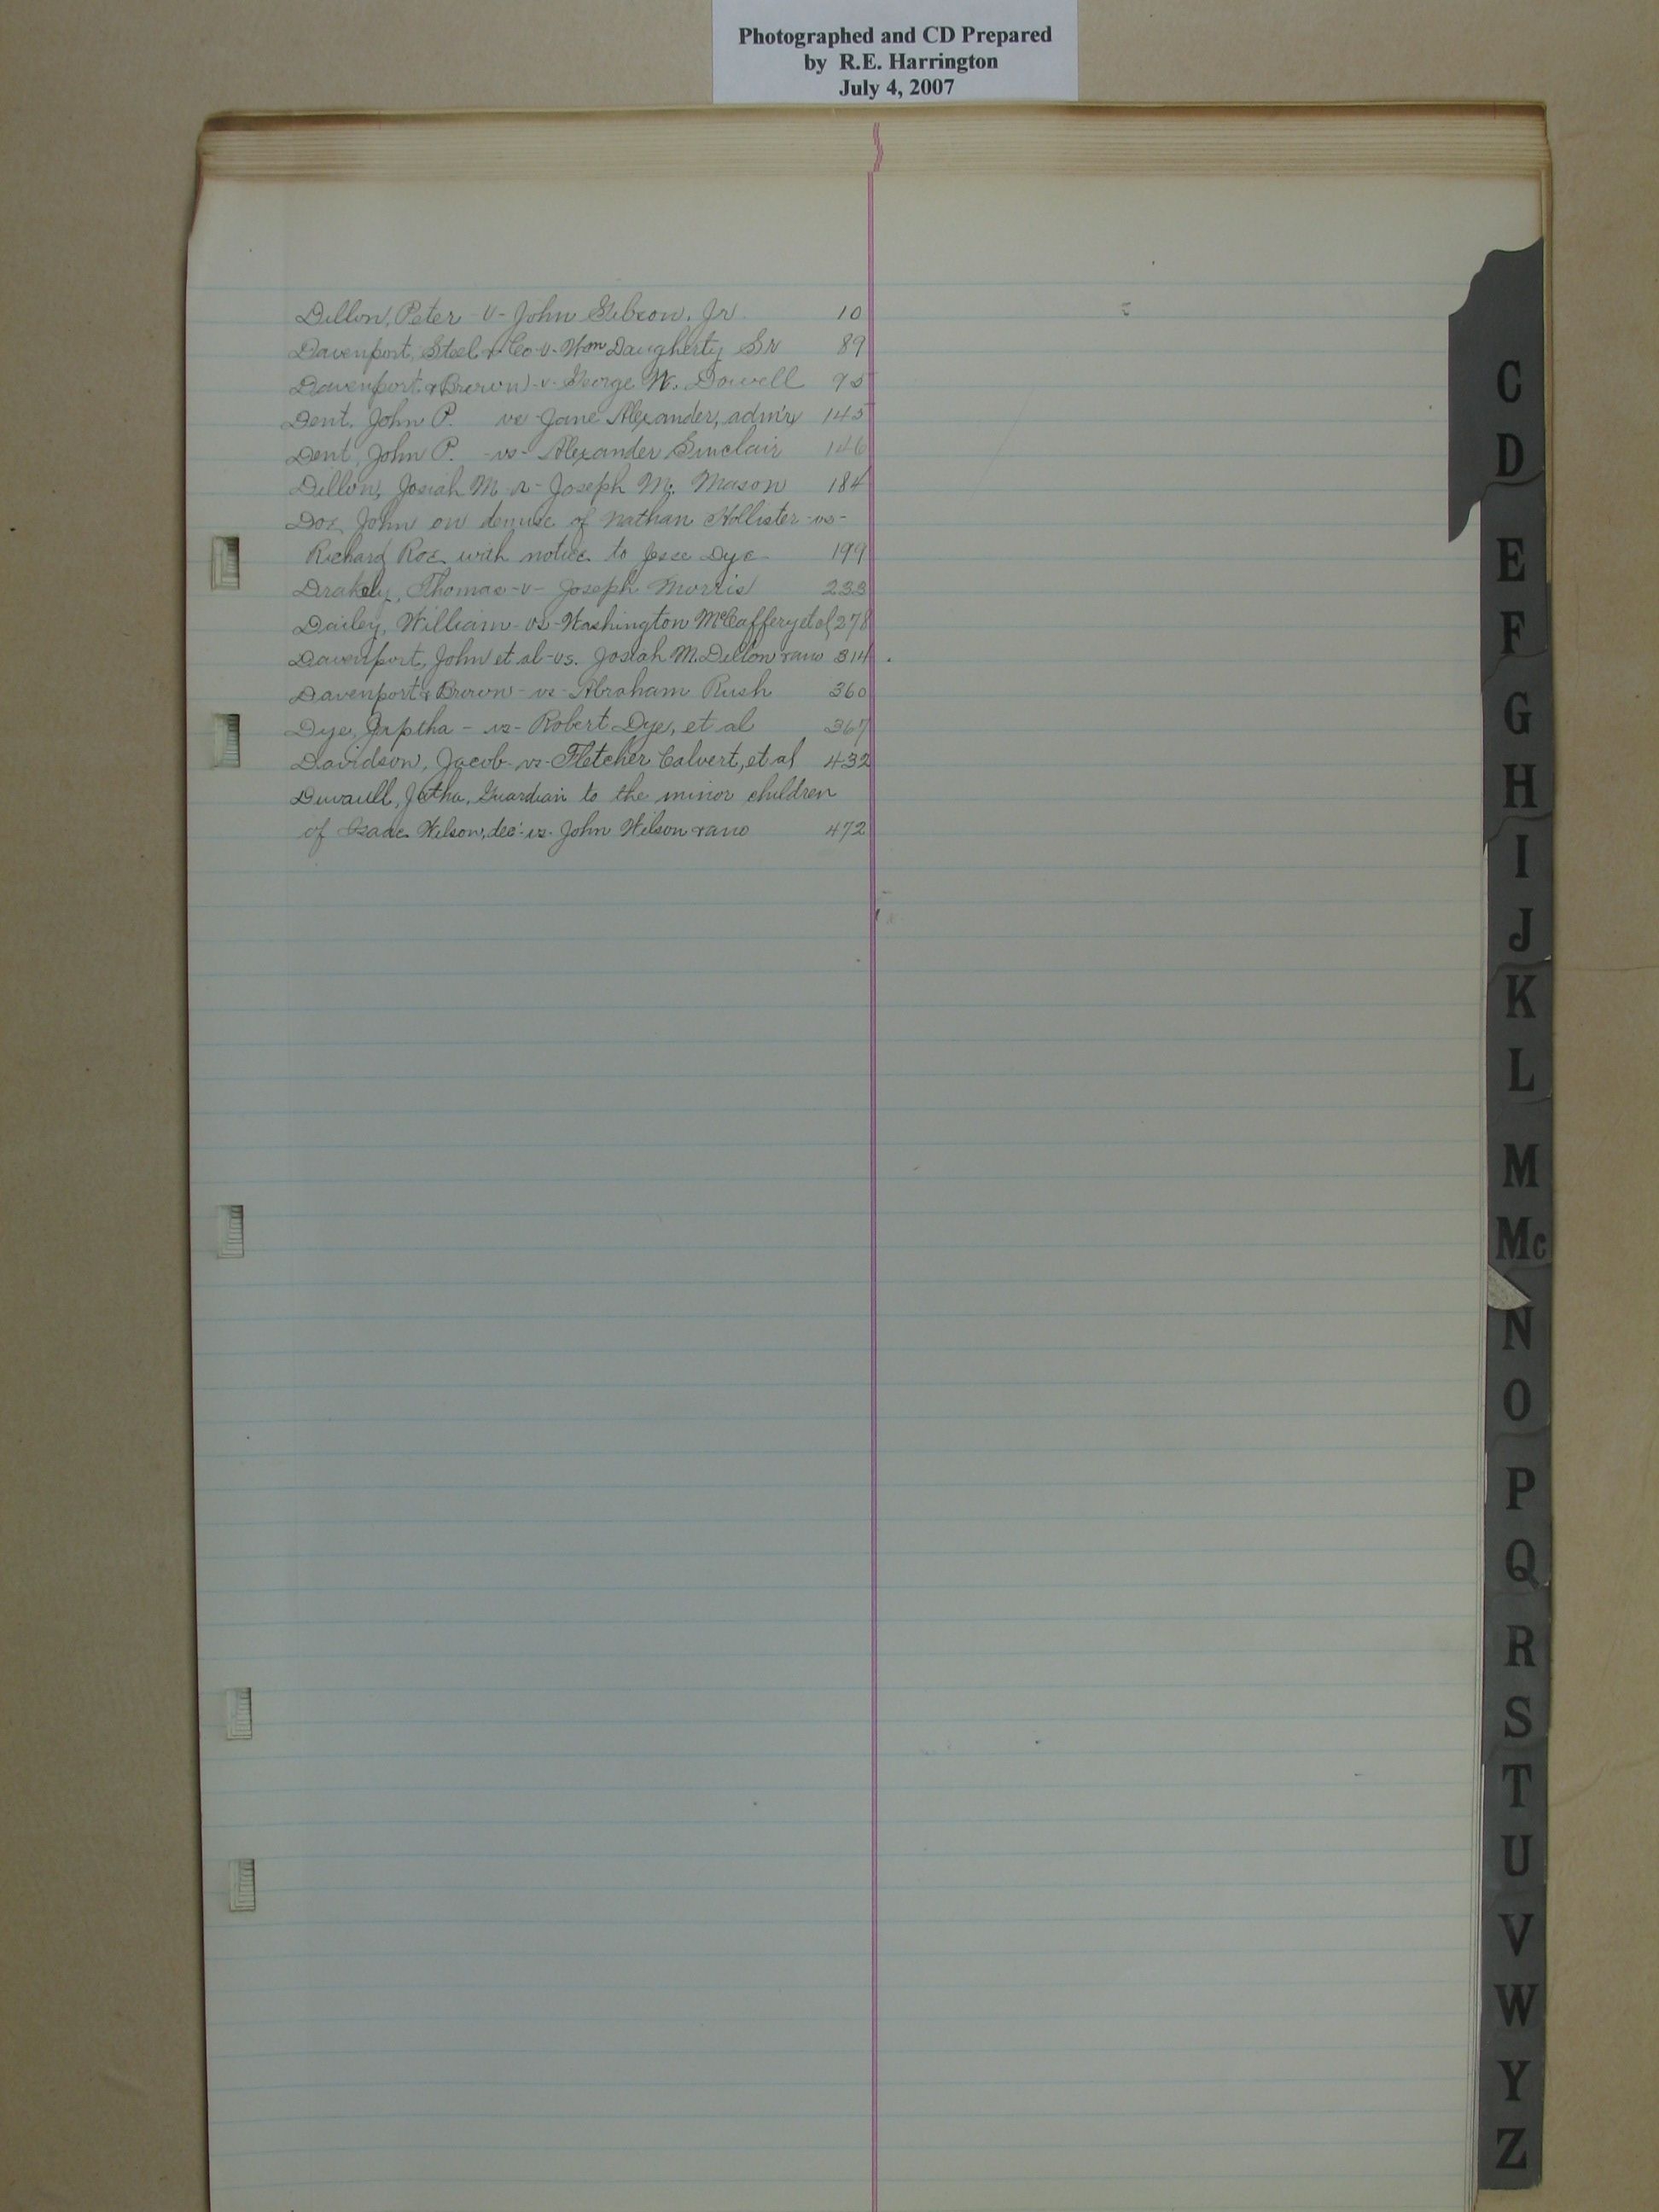 Photographed and CD Prepared
by R.E. Harrington
July 4, 2007
Dillon, Peter -v- John Gibson, Jr. 10
Davenport, Steel & Co -v- Wm Daugherty Sr 89
Davenport & Brown -v- George W. Dowell 95
Dent, John P. vs Jane Alexander, adm'rx 145
Dent, John P. -vs- Alexander Sinclair 146
Dillon, Josiah M -v- Joseph Mc Mason 184
Doe, John on demise of Nathan Hollister -vs-
Richard Roe with notice to Jesse Dye 199
Drakely, Thomas -v- Joseph Morris 233
Dailey, William -vs- Washington McCaffery et al 278
Davenport, John et al -vs. Josiah M. Dillon & ano 314
Davenport & Brown -vs- Abraham Rush 360
Dye, Jeptha -vs- Robert Dye, et al 367
Davidson, Jacob -vs- Fletcher Calvert, et al 432
Duvaull, Guardian to the minor children
of Isaac Wilson, dec' -vs- John Wilson & ano 472
C
D
E
F
G
H
I
J
K
L
M
Mc
N
O
P
Q
R
S
T
U
V
W
Y
Z